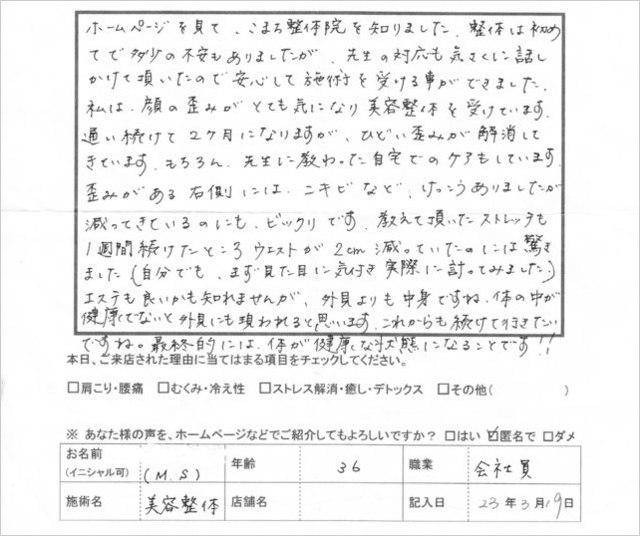 ホームページを見て、こまち整体院を知りました。整体は初め
てで多少の不安もありましたが、先生の対応も気さくに話し
かけて頂いたので安心して施術を受ける事ができました。
私は、顔の歪みがとても気になり美容整体を受けています。
通い続けて2ヶ月になりますが、ひどい歪みが解消して
きています。もちろん、先生に教わった自宅でのケアもしています。
歪みがある右側には、ニキビなど、けっこうありましたが
減ってきているのにも、ビックリです。教えて頂いたストレッチも
1週間続けたところウエストが2cm減っていたのには驚き
ました(自分でも、まず見た目に気付き実際に計ってみました)
エステも良いかも知れませんが、外見よりも中身ですね。体の中が
健康でないと外見にも現われると思います。これからも続けて行きたい
ですね。最終的には、体が健康な状態になることです!!
本日、ご来店された理由に当てはまる項目をチェックしてください。
□肩こり・腰痛 □むくみ・冷え性 □ストレス解消・癒し・デトックス □その他( )
※ あなた様の声を、ホームページなどでご紹介してもよろしいですか? □はい ☑匿名で □ダメ
お名前 (イニシャル可) (M.S) 年齢 36 職業 会社員
施術名 美容整体 店舗名 記入日 23年3月19日